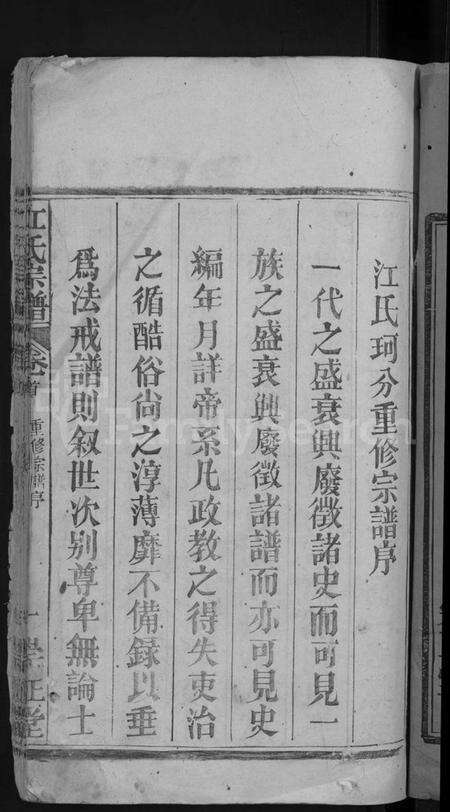 江氏珂分重修宗譜序
一代之盛衰興廢徵諸史而可見一
族之盛衰興廢徵諸譜而亦可見史
編年月詳帝系凡政教之得失吏治
之循酷俗尙之淳薄靡不備録以垂
爲法戒譜則叙世次别尊卑無論士
江氏宗譜 卷首 重修宗譜序 一